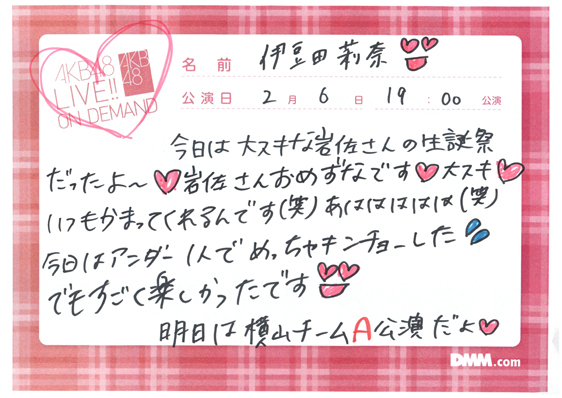 AKB48
LIVE!!
ON DEMAND
AKB
48
名前 伊豆田莉奈
公演日 2月6日 19:00公演
今日は大スキな岩佐さんの生誕祭
だったよ〜岩佐さんおめずなです大スキ
いつもかまってくれるんです(笑)あはははは(笑)
今日はアンダー1人でめっちゃキンチョーした
でもすごく楽しかったです
明日は横山チームA公演だよ
DMM.com